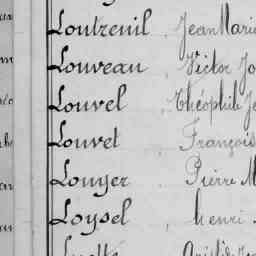 Loutreuil Jean Marie
Louveau Victor Jo
Louvel Théophile Je
Louvet François
Louyer Pierre M
Loysel henri